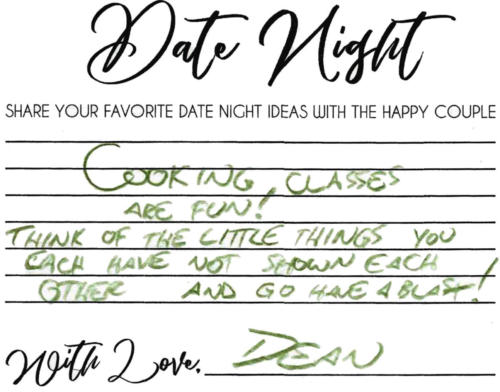 Date Night
SHARE YOUR FAVORITE DATE NIGHT IDEAS WITH THE HAPPY COUPLE
COOKING, CLASSES
ARE FUN!
THINK OF THE LITTLE THINGS YOU
EACH HAVE NOT SHOWN EACH
OTHER AND GO HAVE A BLAST!
With Love, DEAN